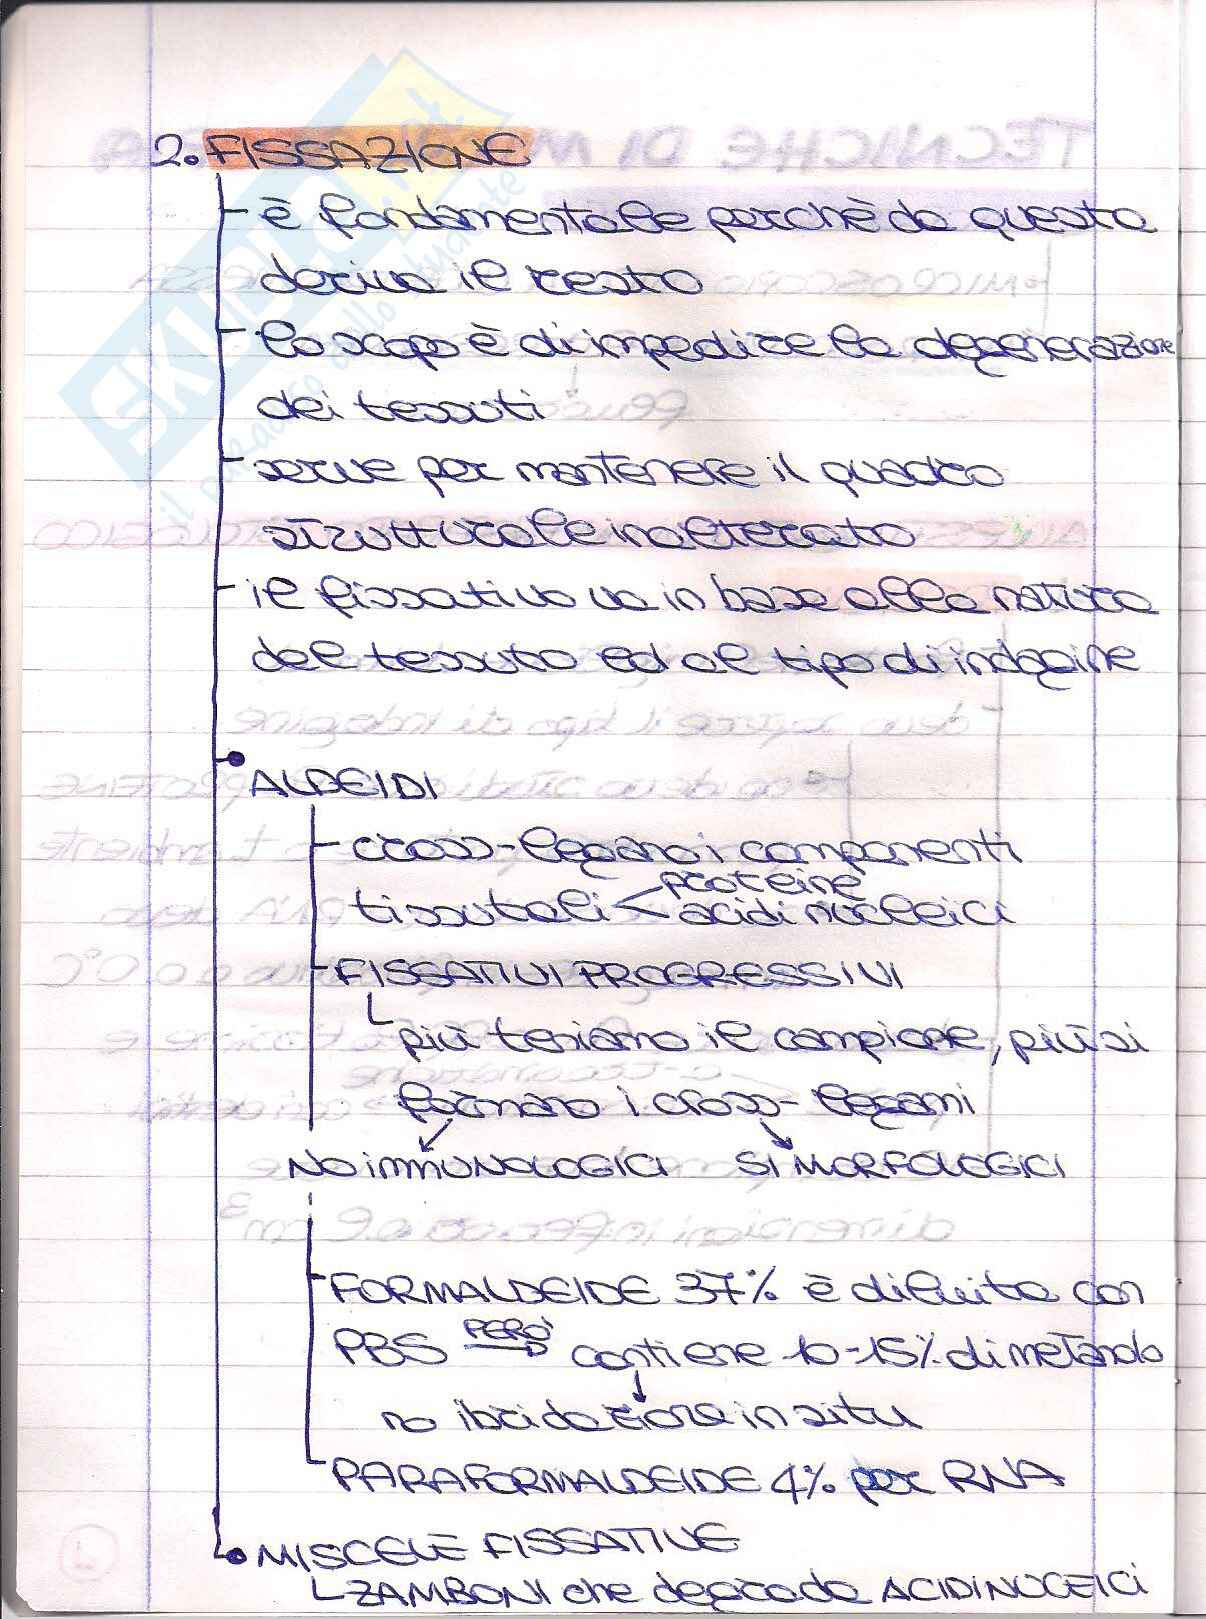 2. FISSAZIONE
è fondamentale perchè da questa
deriva il resto
lo scopo è di impedire la degenerazione
dei tessuti
serve per mantenere il quadro
strutturale inalterato
il fissativo va in base alla natura
del tessuto ed al tipo di indagine
ALDEIDI
cross-legano i componenti
proteine
tissutali < acidi nucleici
FISSATIVI PROGRESSIVI
più teniamo il campione, più si
formano i cross-legami
NO immUNOLOGICI SI MORFOLOGICI
FORMALDEIDE 37% è diluita con
PBS PERÒ contiene 10-15% di metanolo
no ibridazione in situ
PARAFORMALDEIDE 4% per RNA
MISCELE FISSATIVE
ZAMBONI che degrada ACIDI NUCLEICI
SKUOLA.it
il paradiso dello studente